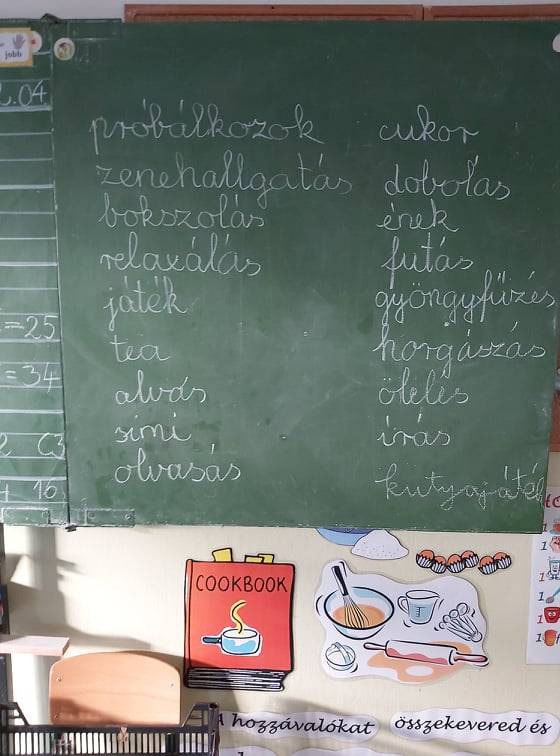 jobb
.04
próbálkozok
zenehallgatás
bokszolás
relaxálás
játék
tea
alvás
simi
olvasás
cukor
dobolás
ének
futás
gyöngyfűzés
horgászás
ölelés
írás
kutyajáték
=25
=34
16
COOKBOOK
A hozzávalókat
összekevered és